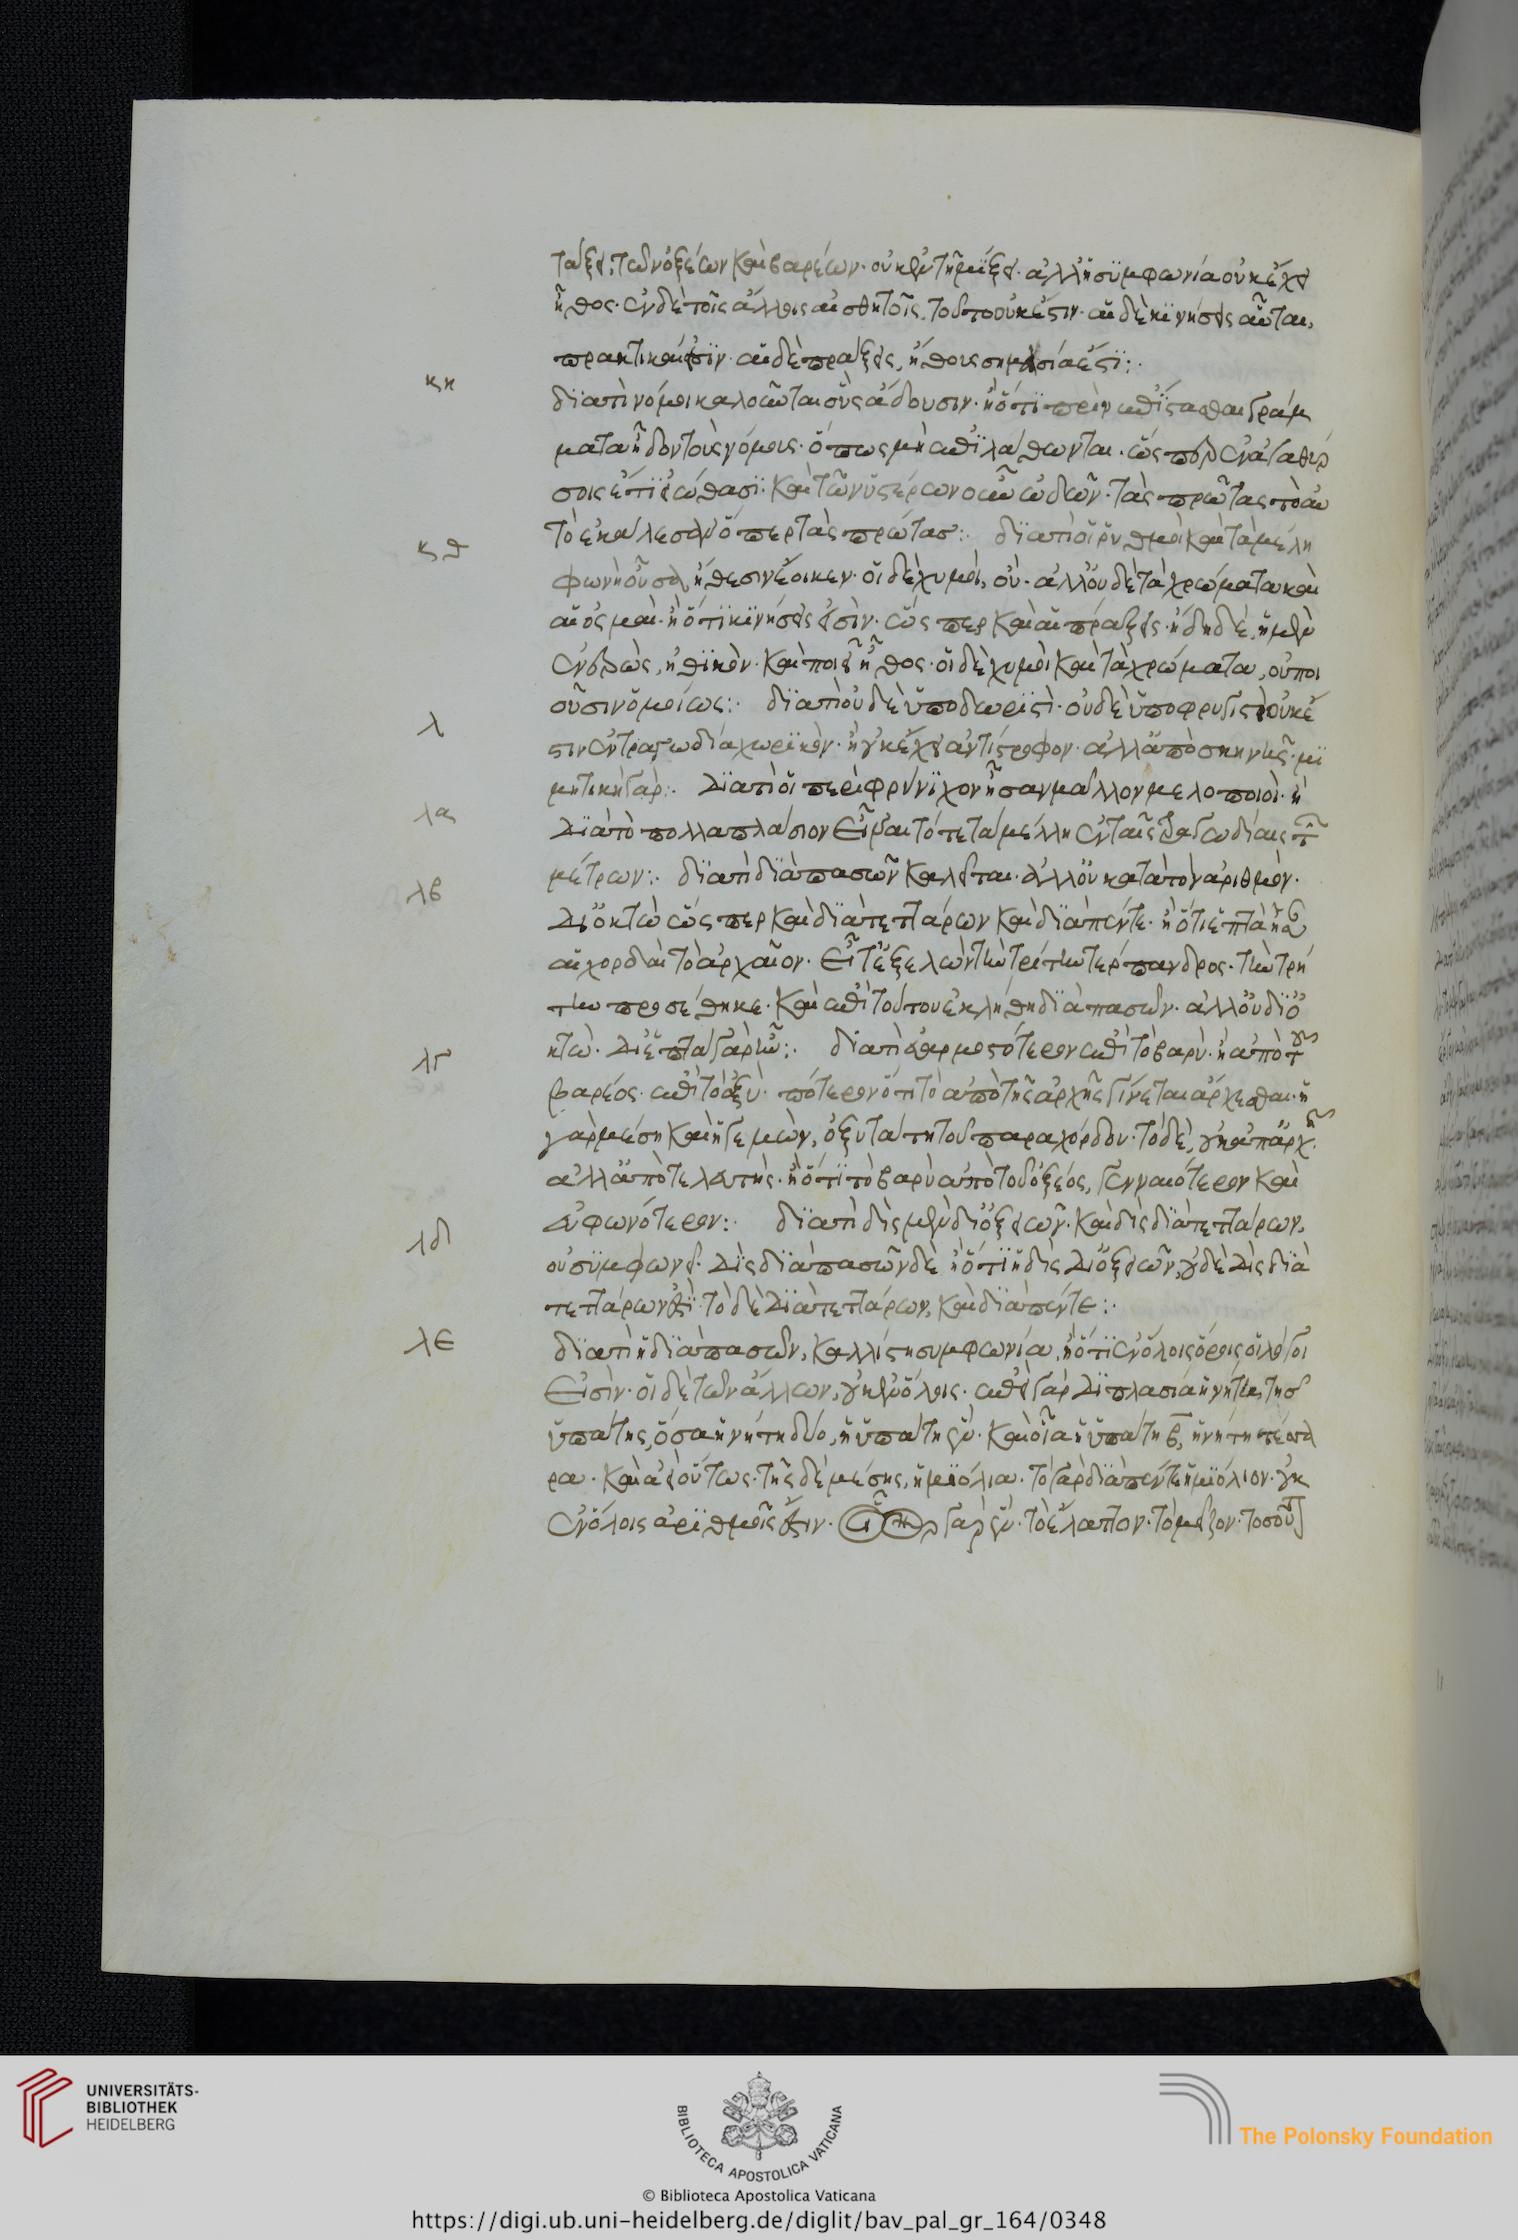 τάξει τῶν ὀξέων καὶ βαρέων· οὐκ ἐν τῇ μίξει· ἀλλ' ἡ συμφωνία οὐκ ἔχει
ἦθος· ἐν δὲ τοῖς ἄλλοις αἰσθητοῖς, τοῦτο οὐκ ἔστιν· αἱ δὲ κινήσεις αὗται,
πρακτικαί εἰσιν· αἱ δὲ πράξεις, ἤθους σημασία ἐστί:·
κη
διατί νόμοι καλοῦνται οὓς ἄδουσιν· ἢ ὅτι πρὶν ἐπίστασθαι γράμ
ματα ᾖδον τοὺς νόμους· ὅπως μὴ ἐπιλάθωνται· ὥσπερ ἐν ἀγαθύρ
σοις ἔτι εἰώθασι· καὶ τῶν ὑστέρων οὖν ὠδῶν· τὰς πρώτας τὸ αὐ
τὸ ἐκάλεσαν ὅπερ τὰς πρώτας:· διατί οἱ ῥυθμοὶ καὶ τὰ μέλη
κθ
φωνὴ οὖσα, ἤθεσιν ἔοικεν· οἱ δὲ χυμοί, οὐ· ἀλλ' οὐδὲ τὰ χρώματα καὶ
αἱ ὀσμαί· ἢ ὅτι κινήσεις εἰσίν· ὥσπερ καὶ αἱ πράξεις· ἤδη δὲ, ἡ μὲν
ἠθικὸν· καὶ ποιεῖ ἦθος· οἱ δὲ χυμοὶ καὶ τὰ χρώματα, οὐ ποι
οῦσιν ὁμοίως:· διατί οὐδὲ ὑποδωριστὶ· οὐδὲ ὑποφρυγιστὶ οὐκ ἔ
λ
στιν ἐν τραγωδία χωρικόν· ἢ οὐκ ἔχει ἀντίστροφον· ἀλλ' ἀπὸ σκηνῆς· μι
μητικὴ γάρ:· Διατί οἱ περὶ φρύνιχον ἦσαν μᾶλλον μελοποιοί· ἢ
λα
Διὰ τὸ πολλαπλάσιον εἶναι τότε τὰ μέλλη ἐν ταῖς τραγωδίαις τῶν
μέτρων:· διατί διὰ πασῶν καλεῖται· ἀλλ' οὐ κατὰ τὸν ἀριθμὸν·
λβ
Δι' ὀκτὼ ὥσπερ καὶ διὰ τεττάρων καὶ διὰ πέντε· ἢ ὅτι ἑπτὰ ἦσαν
αἱ χορδαὶ τὸ ἀρχαῖον· εἶτ' ἐξελὼν τὴν τρίτην τέρπανδρος· τὴν τρή
την προσέθηκε· καὶ ἐπὶ τούτου ἐκλήθη διὰ πασῶν· ἀλλ' οὐ δι' ὀ
κτώ· Δι' ἑπτὰ γὰρ ἦν:· διατί εὐαρμοστότερον ἐπὶ τὸ βαρὺ· ἢ ἀπὸ τοῦ
λγ
βαρέος· ἐπὶ τὸ ὀξύ· πότερον ὅτι τὸ ἀπὸ τῆς ἀρχῆς γίνεται ἄρχεσθαι· ἡ
γὰρ μέση καὶ ἡγεμὼν, ὀξυτάτη τοῦ παραχόρδου· τὸ δὲ, οὐκ ἀπ' ἀρχῆς·
ἀλλ' ἀπὸ τελευτῆς· ἢ ὅτι τὸ βαρὺ ἀπὸ τοῦ ὀξέος, γενναιότερον καὶ
εὐφωνότερον:· διατί δὶς μὲν δι' ὀξειῶν· καὶ δὶς διὰ τεττάρων,
λδ
οὐ συμφωνεῖ· Δὶς διὰ πασῶν δὲ ἢ ὅτι ἡ δὶς Δι' ὀξειῶν, οὐδὲ Δὶς διὰ
τεττάρων ἐστὶ· τὸ δὲ Διὰ τεττάρων, καὶ διὰ πέντε:·
λε
διατί ἡ διὰ πασῶν, καλλίστη συμφωνία, ἢ ὅτι ἐν ὅλοις ὅροις οἱ λόγοι
εἰσίν· οἱ δὲ τῶν ἄλλων, οὐκ ἐν ὅλοις· ἐπεὶ γὰρ Διπλασία ἡ νήτη, τῆς
ὑπάτης, ὅσα ἡ νήτη δύο, ἡ ὑπάτη ἕν· καὶ οἷα ἡ ὑπάτη β, ἡ νήτη τέσσα
ρα· καὶ ἀεὶ οὕτως· τῆς δὲ μέσης, ἡμιόλια· τὸ γὰρ διὰ πέντε ἡμιόλιον· οὐκ
ἐν ὅλοις ἀριθμοῖς ἐστιν· οἷον γὰρ ἕν· τὸ ἔλαττον· τὸ μεῖζον· τοσοῦτ
UNIVERSITÄTS-
BIBLIOTHEK
HEIDELBERG
BIBLIOTECA APOSTOLICA VATICANA
The Polonsky Foundation
© Biblioteca Apostolica Vaticana
https://digi.ub.uni-heidelberg.de/diglit/bav_pal_gr_164/0348